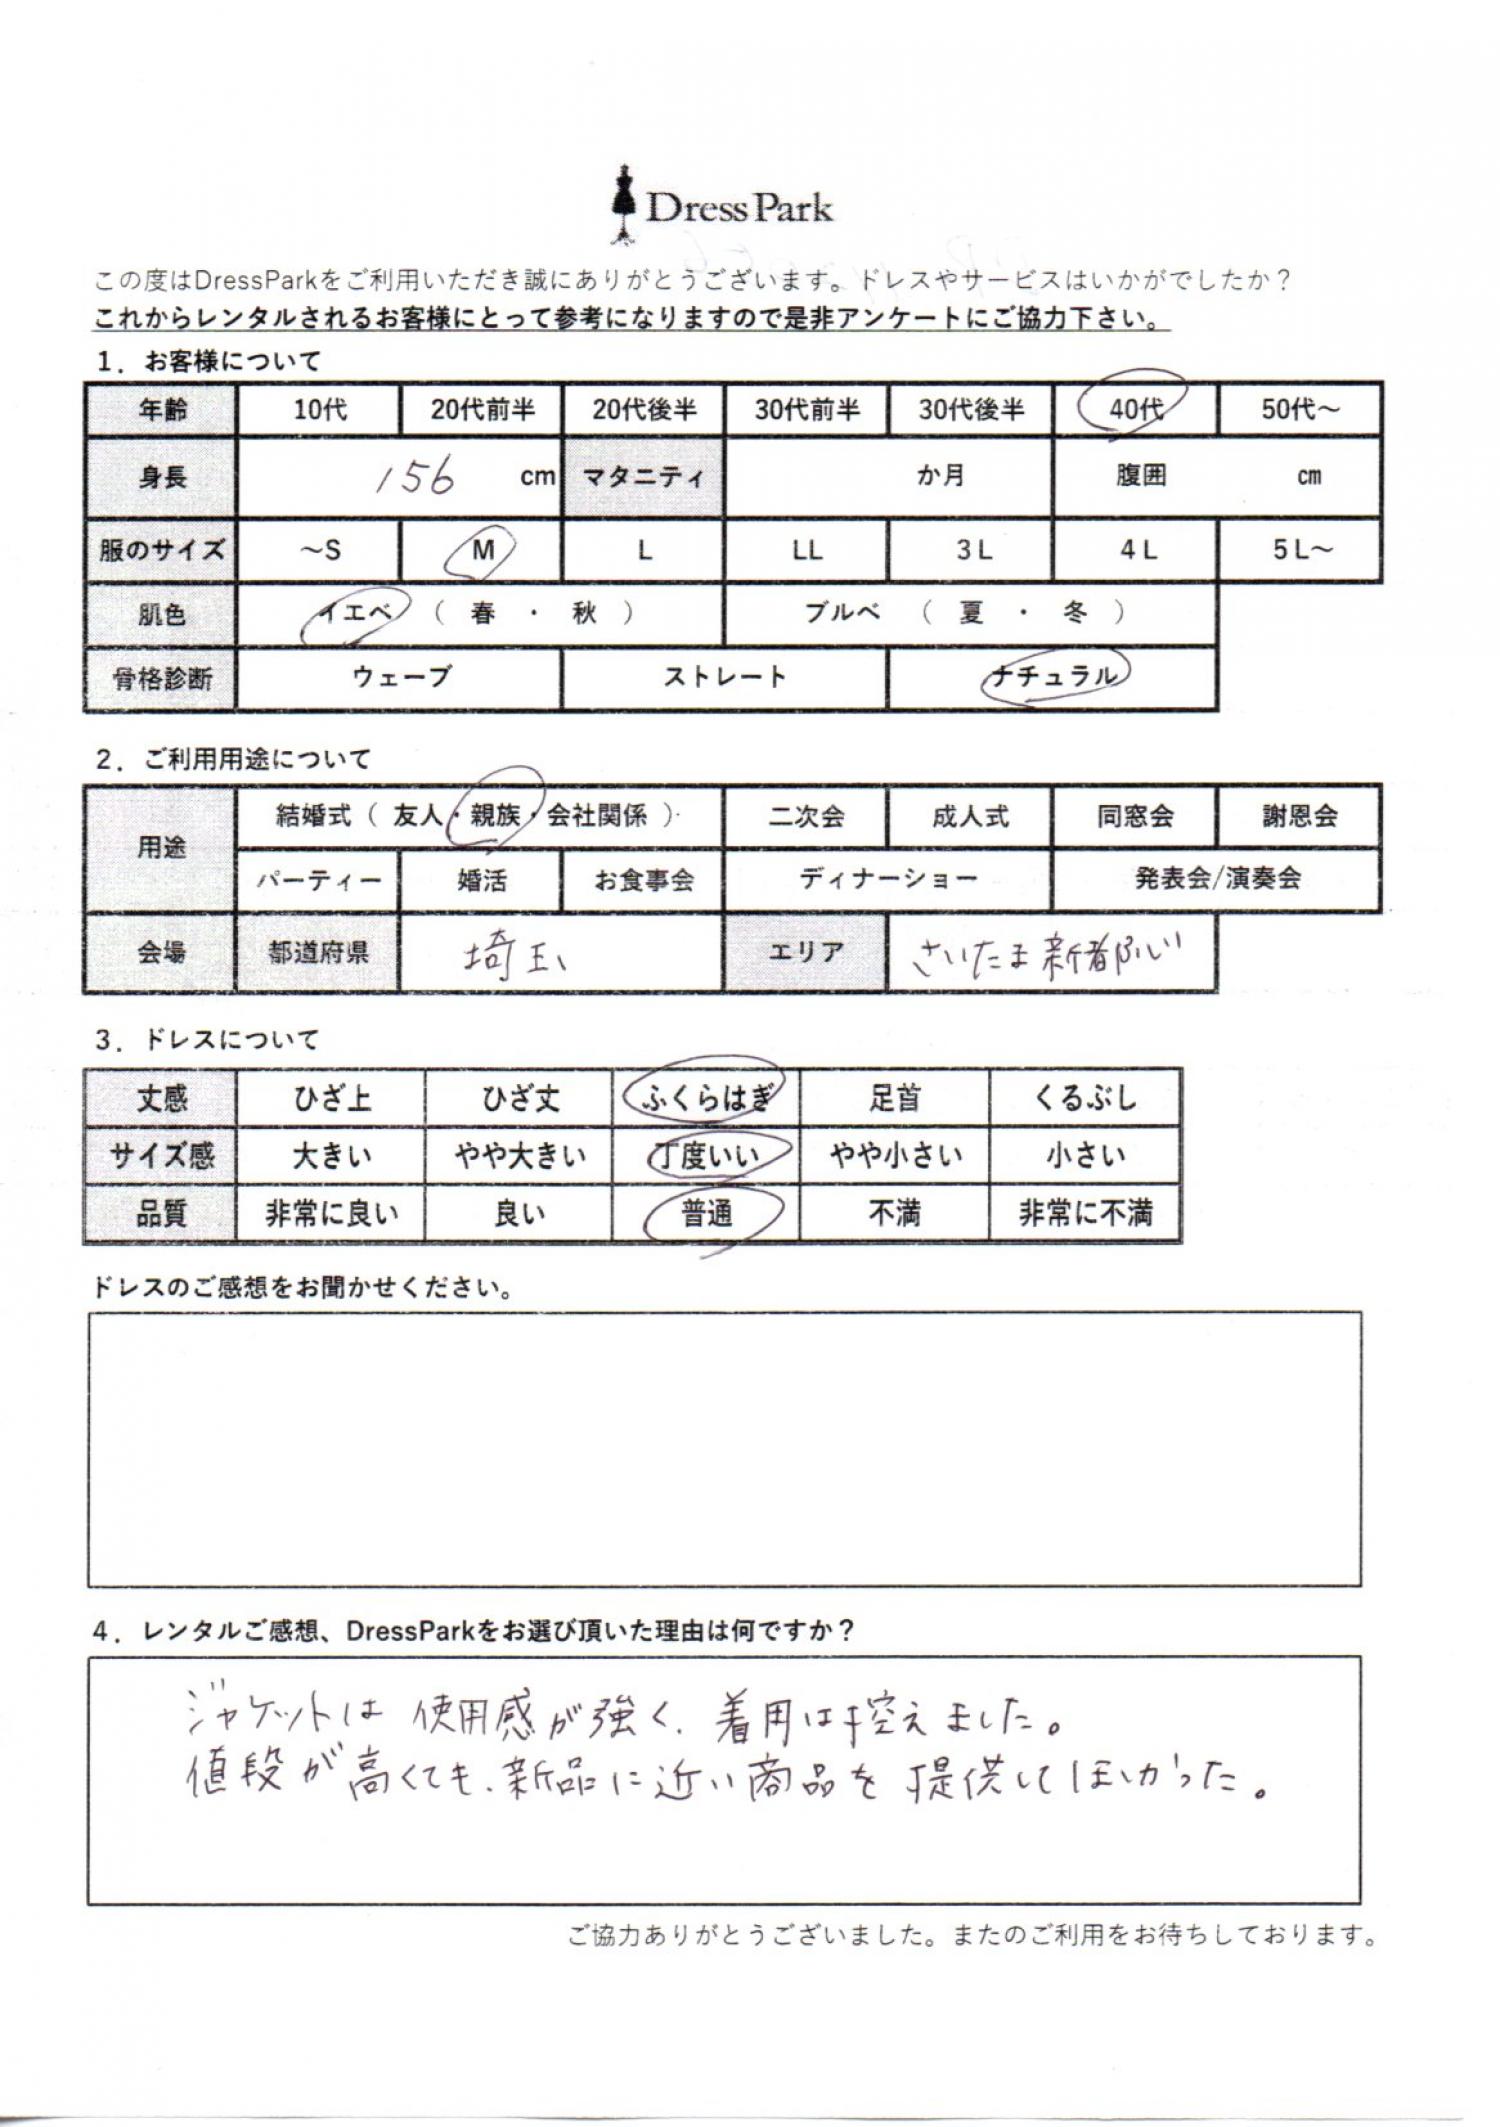 Dress Park
この度はDressParkをご利用いただき誠にありがとうございます。ドレスやサービスはいかがでしたか？
これからレンタルされるお客様にとって参考になりますので是非アンケートにご協力下さい。
1．お客様について
年齢 10代 20代前半 20代後半 30代前半 30代後半 40代 50代～
身長 156 cm マタニティ か月 腹囲 cm
服のサイズ ～S M L LL 3L 4L 5L～
肌色 イエベ （ 春 ・ 秋 ） ブルベ （ 夏 ・ 冬 ）
骨格診断 ウェーブ ストレート ナチュラル
2．ご利用用途について
用途 結婚式（ 友人・親族・会社関係 ） 二次会 成人式 同窓会 謝恩会
パーティー 婚活 お食事会 ディナーショー 発表会/演奏会
会場 都道府県 埼玉 エリア さいたま新都心
3．ドレスについて
丈感 ひざ上 ひざ丈 ふくらはぎ 足首 くるぶし
サイズ感 大きい やや大きい 丁度いい やや小さい 小さい
品質 非常に良い 良い 普通 不満 非常に不満
ドレスのご感想をお聞かせください。
4．レンタルご感想、DressParkをお選び頂いた理由は何ですか？
ジャケットは 使用感が強く、着用は控えました。
値段が高くても、新品に近い商品を提供してほしかった。
ご協力ありがとうございました。またのご利用をお待ちしております。